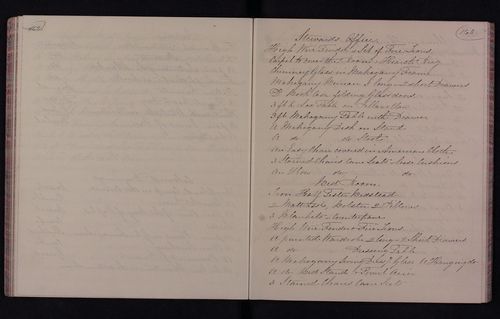 Stewards Office
High Wire Fender & Set of Fire Irons
Carpet to cover the Room - Hearth Rug
Chimney Glass in Mahogany Frame
Mahogany Bureau 3 long 2 short Drawers
Do Book Case folding Glass doors
3 ft 6 Loo Table on Pillar & Claw
3 ft Mahogany Table with Drawer
A Mahogany Desk on Stand
A do do
An Easy Chair covered in American Cloth
3 Stained Chairs Cane Seats - loose Cushions
An Elbow do do
Bed Room
Iron Half Tester Bedstead
2 Mattresses, Bolster & 2 Pillows
3 Blankets - Counterpane
High Wire Fender & Fire Irons
A painted Wardrobe 2 long & 2 Short Drawers
A do Dressing Table
A Mahogany Swing Glass A Hanging do
A do Wash Stand & Toilet Ware
3 Stained Chairs Cane Seats